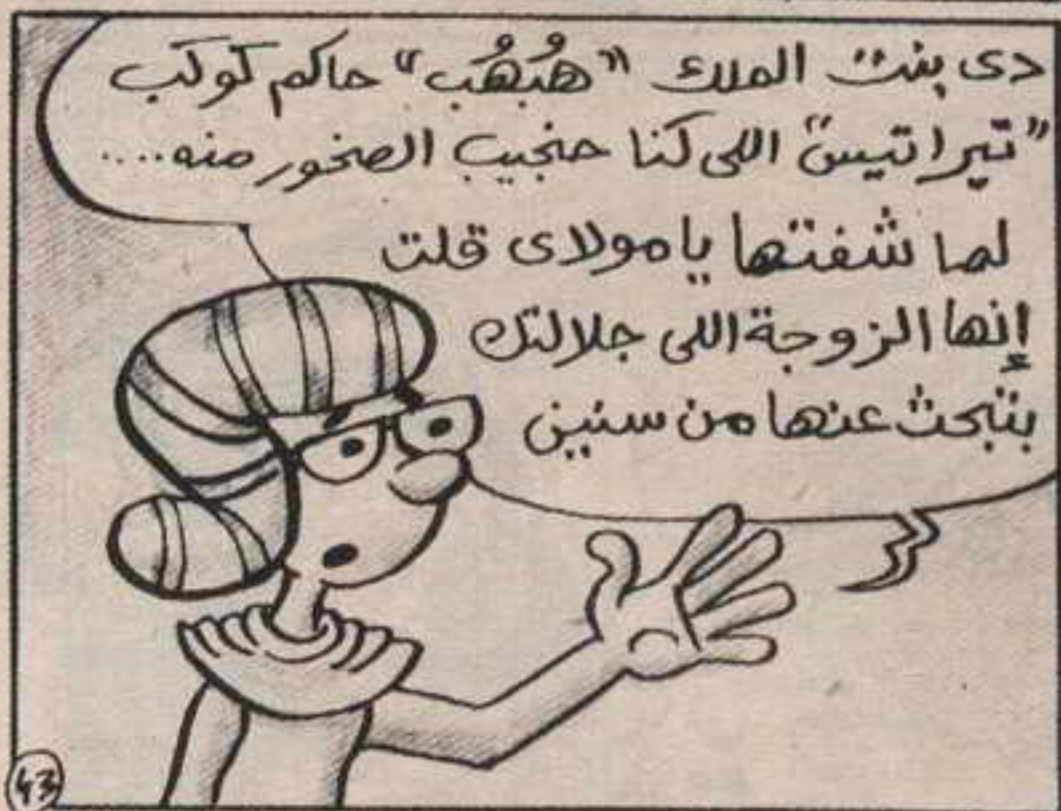 دى بنت الملك "هُبْهُب" حاكم كوكب
"تيراتيس" اللى كنا حنجيب الصخور منه....
لما شفتها يا مولاى قلت
إنها الزوجة اللى جلالتك
بتبحث عنها من سنين
43